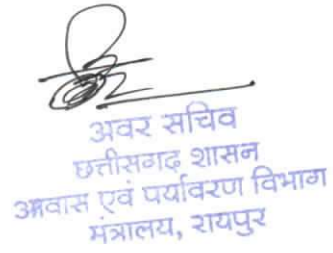 अवर सचिव
छत्तीसगढ़ शासन
आवास एवं पर्यावरण विभाग
मंत्रालय, रायपुर